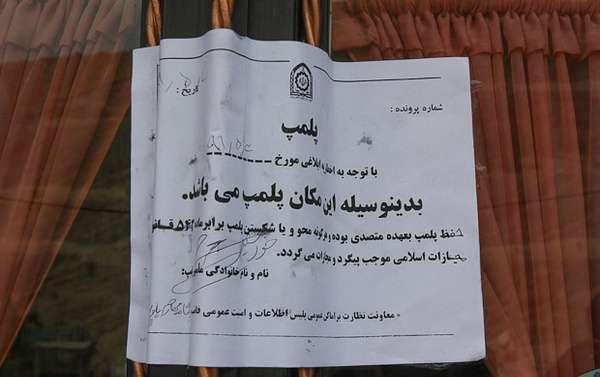 تاریخ:
شماره پرونده:
پلمپ
با توجه به اخطاریه ابلاغی مورخ
بدینوسیله این مکان پلمپ می باشد.
حفظ پلمپ بعهده متصدی بوده و هرگونه محو و یا شکستن پلمپ برابر ماده ۵۴۳ قانون
مجازات اسلامی موجب پیگرد و مجازات می گردد.
نام و نام خانوادگی
معاونت نظارت بر اماکن عمومی پلیس اطلاعات و امنیت عمومی